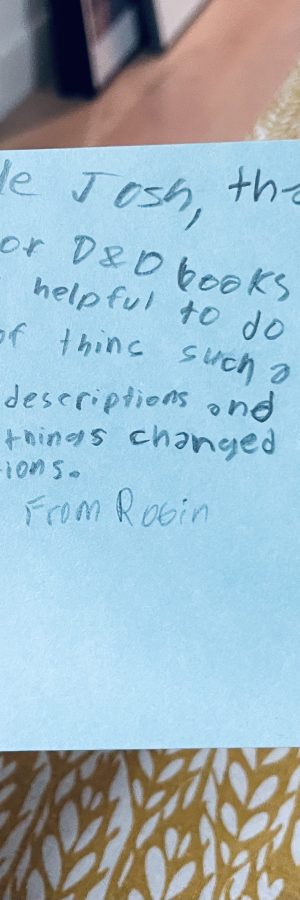 le Josh, tha
or D&D books
helpful to do
of thinc such a
descriptions and
things changed
ions.
From Robin